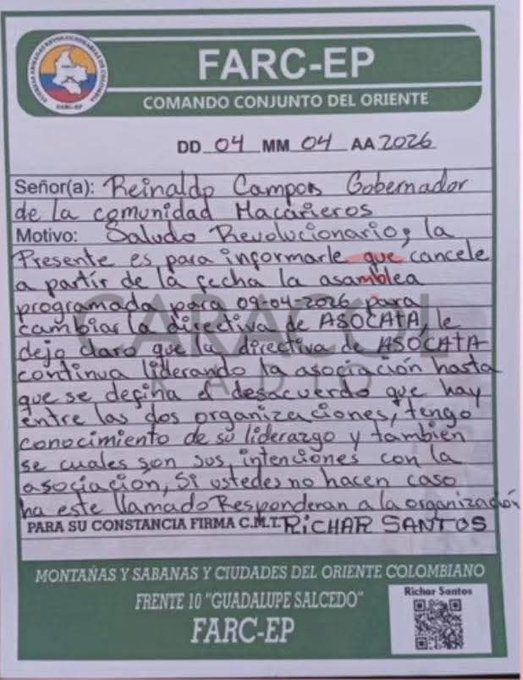 FUERZAS ARMADAS REVOLUCIONARIAS DE COLOMBIA
FARC-EP
FARC-EP
COMANDO CONJUNTO DEL ORIENTE
DD 04 MM 04 AA 2026
Señor(a): Reinaldo Campos Gobernador
de la comunidad Macañeros
Motivo: Saludo Revolucionario, la
Presente es para informarle que cancele
a partir de la fecha la asamblea
programada para 09-04-2026 para
cambiar la directiva de ASOCATA, le
dejo claro que la directiva de ASOCATA
continua liderando la asociación hasta
que se defina el desacuerdo que hay
entre las dos organizaciones, tengo
conocimiento de su liderazgo y también
se cuales son sus intenciones con la
asociación, Si ustedes no hacen caso
ha este llamado Responderan a la organización
PARA SU CONSTANCIA FIRMA C.M.T. RiCHAR SANTOS
CARACOL
RADIO
MONTAÑAS Y SABANAS Y CIUDADES DEL ORIENTE COLOMBIANO
FRENTE 10 "GUADALUPE SALCEDO"
FARC-EP
Richar Santos